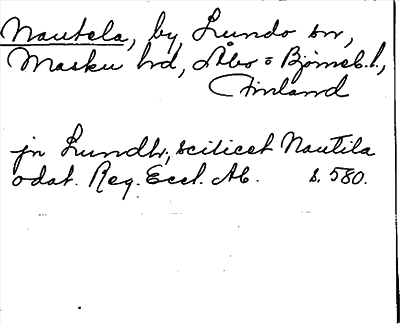 Nautela, by Lundo sn,
Masku hd, Åbo o Björneb. l.,
Finland
jn Lundh, scilicet Nautila
odat. Reg. Eccl. Ab. s. 580.